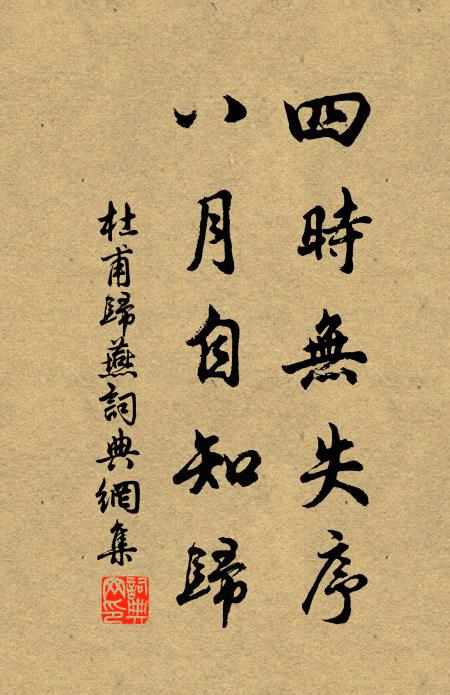 四時無失序
八月自知歸
杜甫歸燕詞典網集
詞典網印